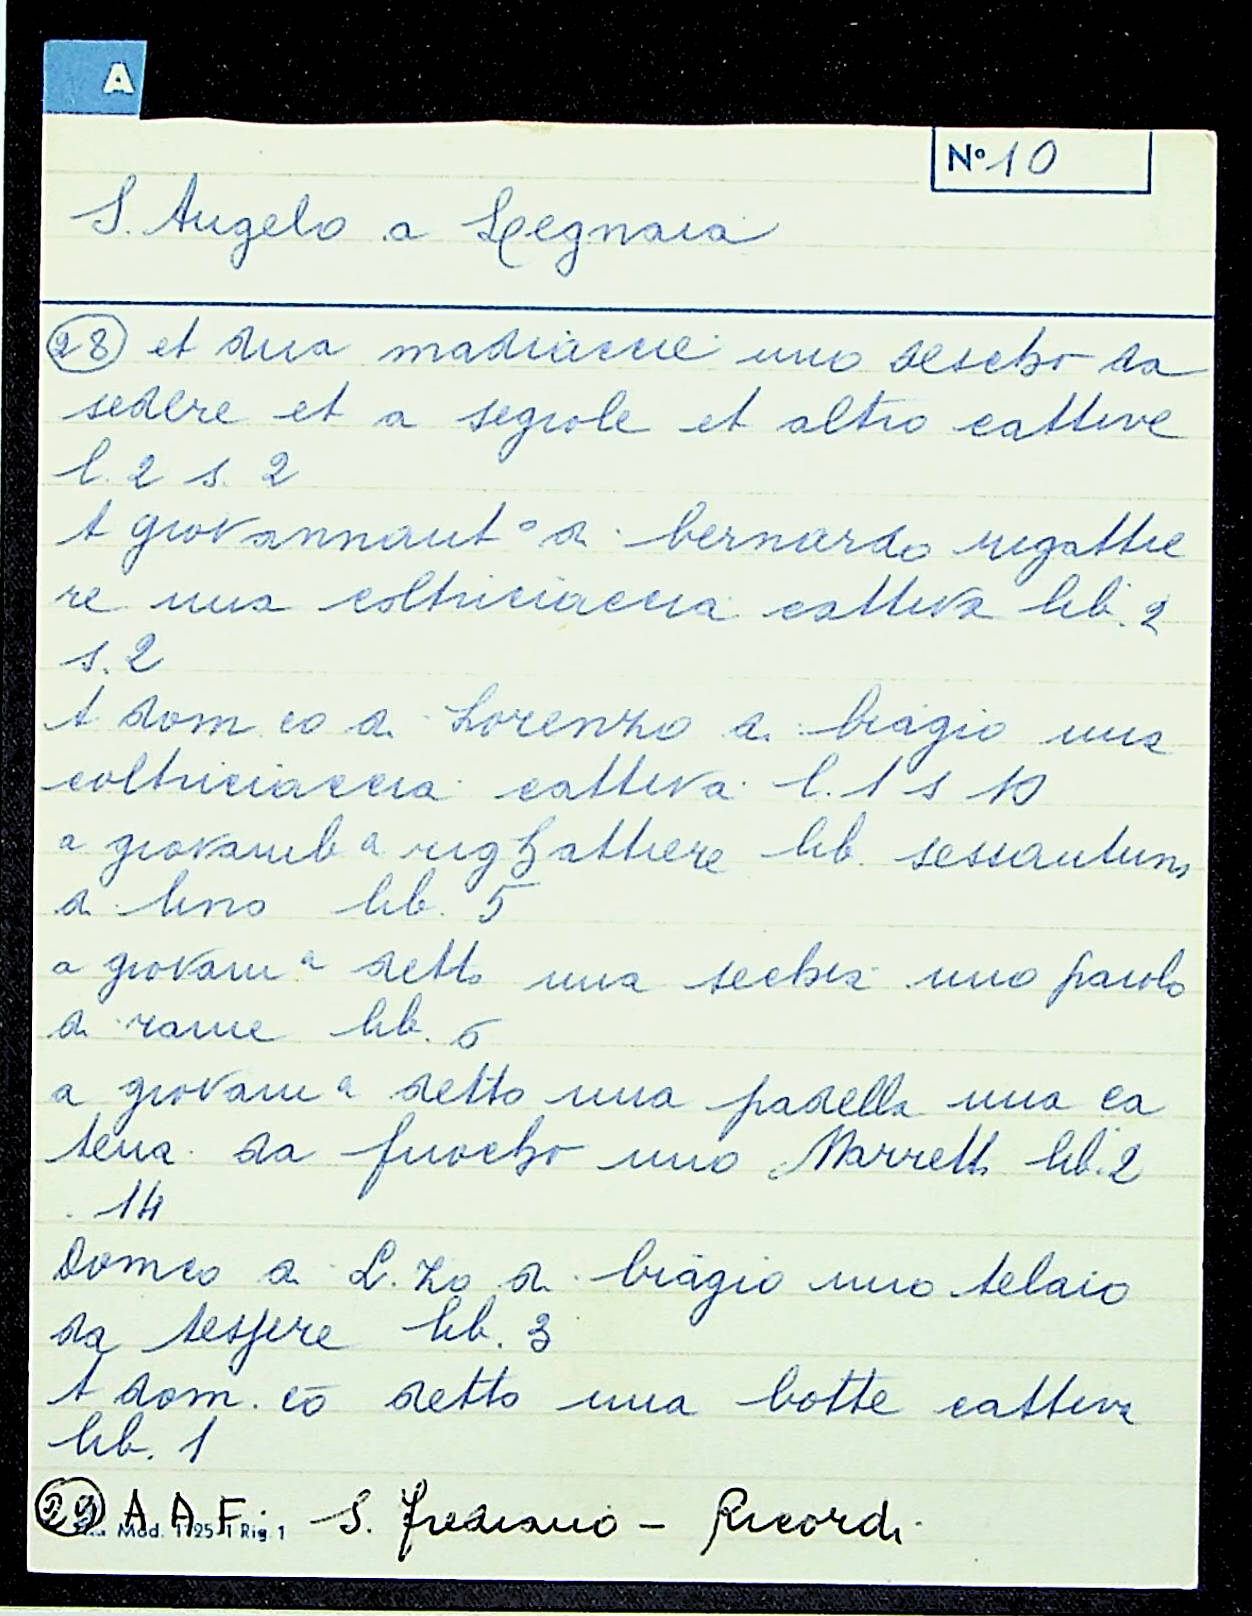 A
N° 10
S. Angelo a Legnaia
28 et dua madiacce uno descho da
sedere et a segiole et altro cattive
l. 2 s. 2
A giovannant° di bernardo rigattie
re una coltriciaccia cattiva lib. 2
s. 2
A dom co di Lorenzo di biagio una
coltriciaccia cattiva l. 1 s 10
a giovamb a righattiere lib. sessantuno
di lino lib. 5
a giovam a detto una sechia uno paiolo
di rame lib. 6
a giovam a detto una padella una ca
tena da fuocho uno Marretto lib. 2
. 14
Domco di L.zo di biagio uno telaio
da tessere lib. 3
A dom. co detto una botte cattiva
lib. 1
29 A. A. F. S. Frediano - Ricordi
Mod. 1125/1 Rig 1